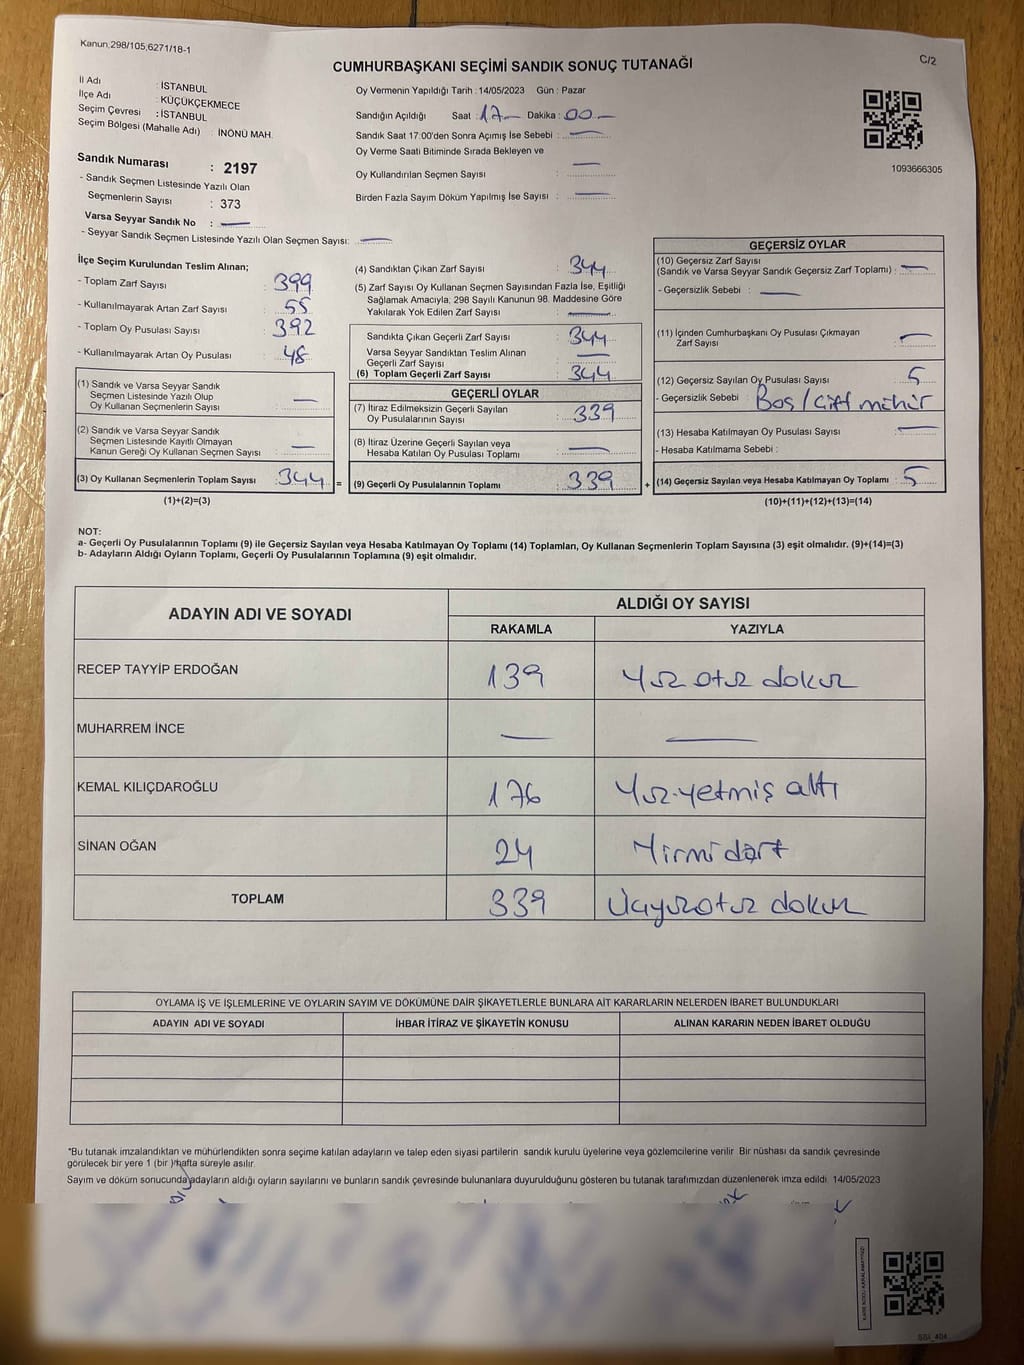 Kanun,298/105,6271/18-1
CUMHURBAŞKANI SEÇİMİ SANDIK SONUÇ TUTANAĞI
C/2
İl Adı : İSTANBUL
İlçe Adı : KÜÇÜKÇEKMECE
Seçim Çevresi : İSTANBUL
Seçim Bölgesi (Mahalle Adı) : İNÖNÜ MAH.
Sandık Numarası : 2197
- Sandık Seçmen Listesinde Yazılı Olan
Seçmenlerin Sayısı : 373
Varsa Seyyar Sandık No : —
- Seyyar Sandık Seçmen Listesinde Yazılı Olan Seçmen Sayısı: —
Oy Vermenin Yapıldığı Tarih : 14/05/2023 Gün : Pazar
Sandığın Açıldığı Saat : 17 Dakika : 00
Sandık Saat 17:00'den Sonra Açımış İse Sebebi : —
Oy Verme Saati Bitiminde Sırada Bekleyen ve
Oy Kullandırılan Seçmen Sayısı : —
Birden Fazla Sayım Döküm Yapılmış İse Sayısı : —
1093666305
İlçe Seçim Kurulundan Teslim Alınan;
- Toplam Zarf Sayısı : 399
- Kullanılmayarak Artan Zarf Sayısı : 55
- Toplam Oy Pusulası Sayısı : 392
- Kullanılmayarak Artan Oy Pusulası : 48
(1) Sandık ve Varsa Seyyar Sandık
Seçmen Listesinde Yazılı Olup
Oy Kullanan Seçmenlerin Sayısı : —
(2) Sandık ve Varsa Seyyar Sandık
Seçmen Listesinde Kayıtlı Olmayan
Kanun Gereği Oy Kullanan Seçmen Sayısı : —
(3) Oy Kullanan Seçmenlerin Toplam Sayısı : 344 =
(1)+(2)=(3)
(4) Sandıktan Çıkan Zarf Sayısı : 344
(5) Zarf Sayısı Oy Kullanan Seçmen Sayısından Fazla İse, Eşitliği
Sağlamak Amacıyla, 298 Sayılı Kanunun 98. Maddesine Göre
Yakılarak Yok Edilen Zarf Sayısı : —
Sandıkta Çıkan Geçerli Zarf Sayısı : 344
Varsa Seyyar Sandıktan Teslim Alınan
Geçerli Zarf Sayısı : —
(6) Toplam Geçerli Zarf Sayısı : 344
GEÇERLİ OYLAR
(7) İtiraz Edilmeksizin Geçerli Sayılan
Oy Pusulalarının Sayısı : 339
(8) İtiraz Üzerine Geçerli Sayılan veya
Hesaba Katılan Oy Pusulası Toplamı : —
(9) Geçerli Oy Pusulalarının Toplamı : 339 +
GEÇERSİZ OYLAR
(10) Geçersiz Zarf Sayısı
(Sandık ve Varsa Seyyar Sandık Geçersiz Zarf Toplamı) : —
- Geçersizlik Sebebi : —
(11) İçinden Cumhurbaşkanı Oy Pusulası Çıkmayan
Zarf Sayısı : —
(12) Geçersiz Sayılan Oy Pusulası Sayısı : 5
- Geçersizlik Sebebi : Boş/Çift mühür
(13) Hesaba Katılmayan Oy Pusulası Sayısı : —
- Hesaba Katılmama Sebebi :
(14) Geçersiz Sayılan veya Hesaba Katılmayan Oy Toplamı : 5
(10)+(11)+(12)+(13)=(14)
NOT:
a- Geçerli Oy Pusulalarının Toplamı (9) ile Geçersiz Sayılan veya Hesaba Katılmayan Oy Toplamı (14) Toplamları, Oy Kullanan Seçmenlerin Toplam Sayısına (3) eşit olmalıdır. (9)+(14)=(3)
b- Adayların Aldığı Oyların Toplamı, Geçerli Oy Pusulalarının Toplamına (9) eşit olmalıdır.
ADAYIN ADI VE SOYADI
ALDIĞI OY SAYISI
RAKAMLA YAZIYLA
RECEP TAYYİP ERDOĞAN 139 Yüz otuz dokuz
MUHARREM İNCE — —
KEMAL KILIÇDAROĞLU 176 Yüz yetmiş altı
SİNAN OĞAN 24 Yirmi dört
TOPLAM 339 Üçyüzotuz dokuz
OYLAMA İŞ VE İŞLEMLERİNE VE OYLARIN SAYIM VE DÖKÜMÜNE DAİR ŞİKAYETLERLE BUNLARA AİT KARARLARIN NELERDEN İBARET BULUNDUKLARI
ADAYIN ADI VE SOYADI İHBAR İTİRAZ VE ŞİKAYETİN KONUSU ALINAN KARARIN NEDEN İBARET OLDUĞU
*Bu tutanak imzalandıktan ve mühürlendikten sonra seçime katılan adayların ve talep eden siyasi partilerin sandık kurulu üyelerine veya gözlemcilerine verilir Bir nüshası da sandık çevresinde
görülecek bir yere 1 (bir )hafta süreyle asılır.
Sayım ve döküm sonucunda adayların aldığı oyların sayılarını ve bunların sandık çevresinde bulunanlara duyurulduğunu gösteren bu tutanak tarafımızdan düzenlenerek imza edildi. 14/05/2023